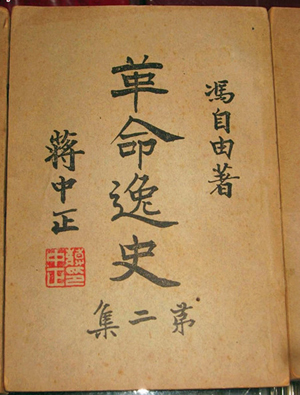 馮自由著
革命逸史
第二集
蔣中正
蔣中正印